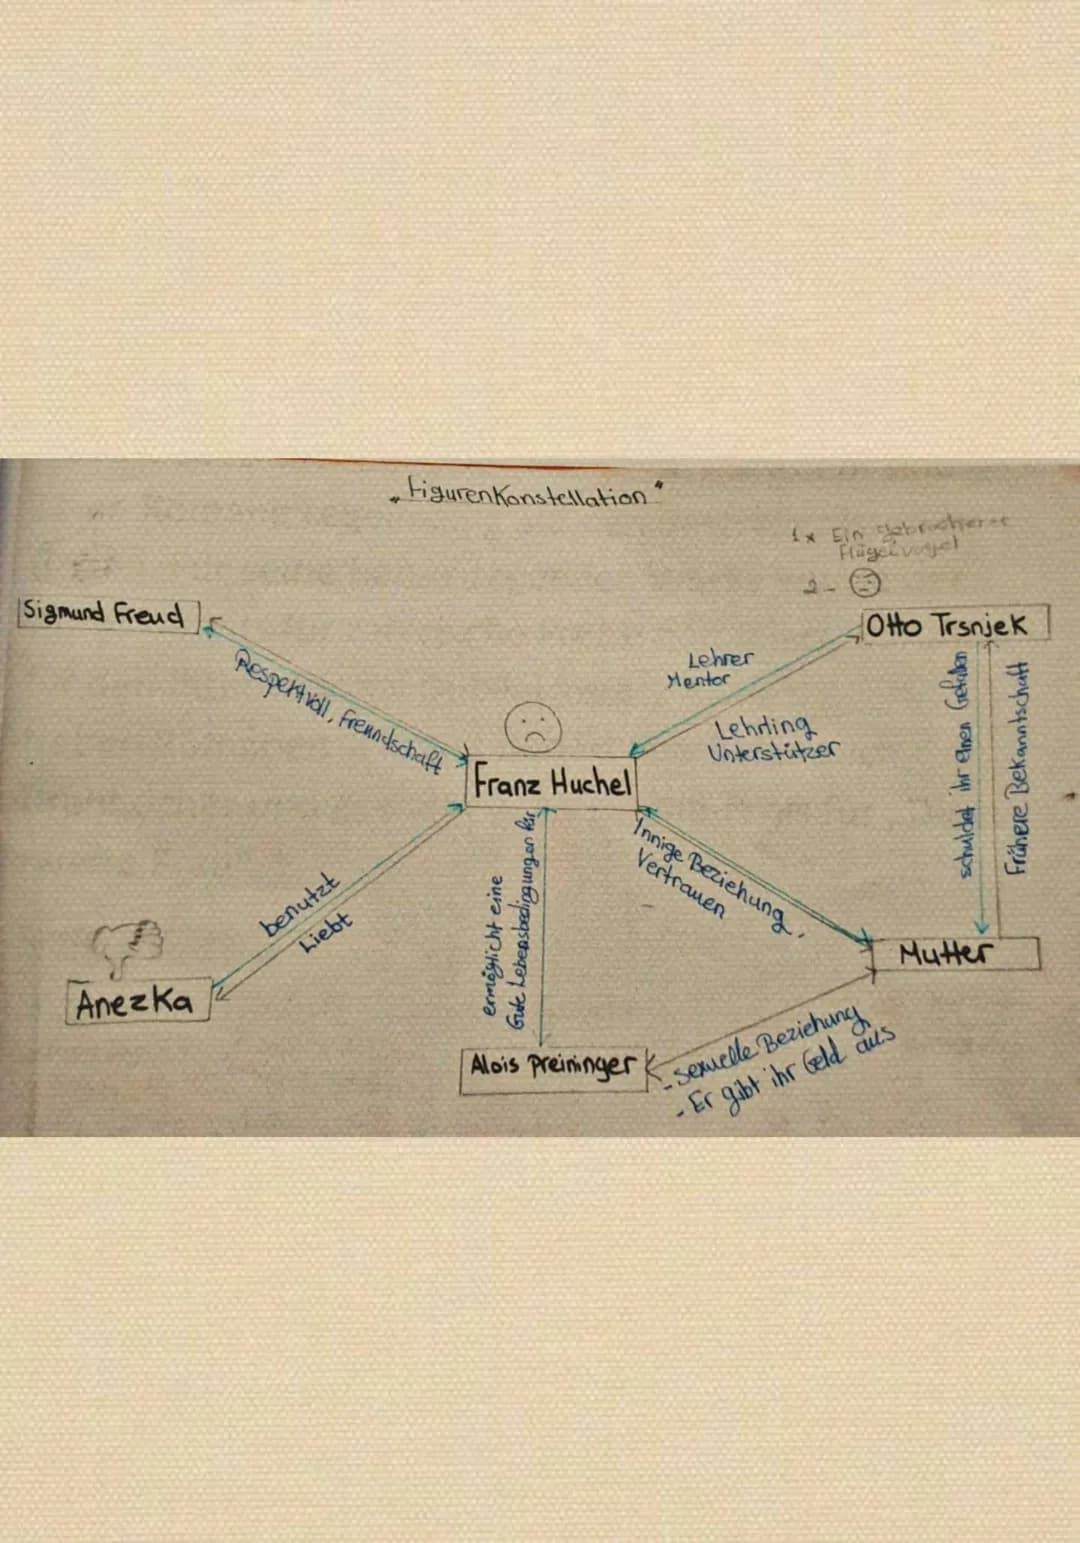 „Figurenkonstellation"
1x Ein gebrochener
Flügelvogel
2-
Sigmund Freud
Otto Trsnjek
Respektvoll, Freundschaft
Lehrer
Mentor
Lehrling
Unterstützer
schuldet ihr einen Gefallen
Frühere Bekanntschaft
Franz Huchel
benutzt
Liebt
ermöglicht eine
Gute Lebensbedingungen für
Innige Beziehung
Vertrauen
Mutter
Anezka
Alois Preininger
- sexuelle Beziehung
- Er gibt ihr Geld aus